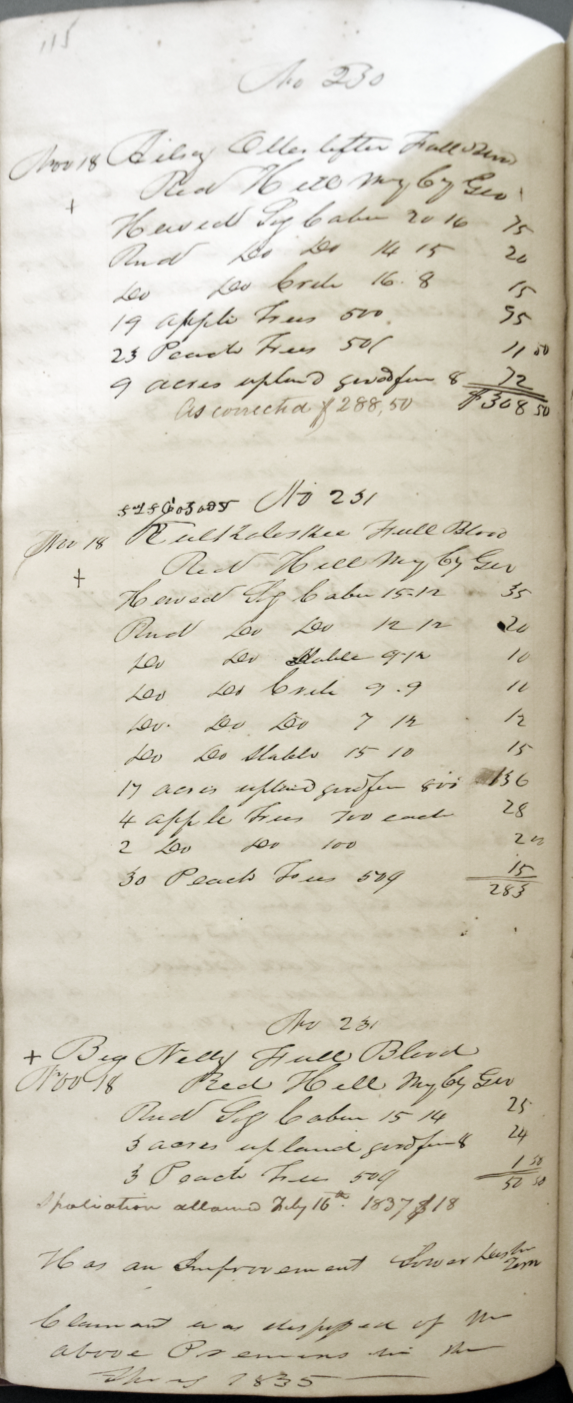 115
No 230
Nov 18 Full Blood
+ Red Hill My Cy Geo
Hewed Log Cabin 20 16 75
Rnd Do Do 14 15 20
Do Do Crib 16 8 15
19 apple Trees 500 95
23 Peach Trees 50c 11 50
9 acres upland good fen 8 72
As corrected $288,50 $308 50
No 231
Nov 18 Full Blood
+ Red Hill My Cy Geo
Hewed Log Cabin 15-12 35
Rnd Do Do 12 12 20
Do Do Stable 9-12 10
Do Do Crib 9.9 10
Do. Do Do 7 12 12
Do Do Stable 15 10 15
17 acres upland good fen 800 136
4 apple Trees 700 each 28
2 Do Do 100 2 00
30 Peach Trees 50c 15
283
No 231
+ Big Nelly Full Blood
Nov 18 Red Hill My Cy Geo
Rnd Log Cabin 15 14 25
3 acres upland good fen 8 24
3 Peach Trees 50c 1 50
50 50
Spoliation allowed July 16th. 1837 $18
Has an Improvement Lower
Claimant was dispssd of the
above Premises in the
Spring 1835